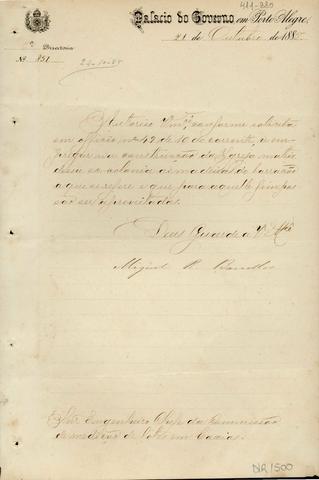 411-380
Palacio do Governo em Porto Alegre,
21 de Outubro de 1885
Directoria
Nº 851
24-10-85
Autoriso Vmcê, conforme solicita
em officio nº 42, de 10 do corrente, a em-
pregar na construcção da Igreja matriz
dessa ex-colonia as madeiras do barracão
a que se refere e que para aquelle fim pos-
são ser aproveitadas.
Deus Guarde a Vmcê
Miguel R. Barcellos
Snr. Engenheiro Chefe da Commissão
de medição de lotes em Caxias.
DIR/500